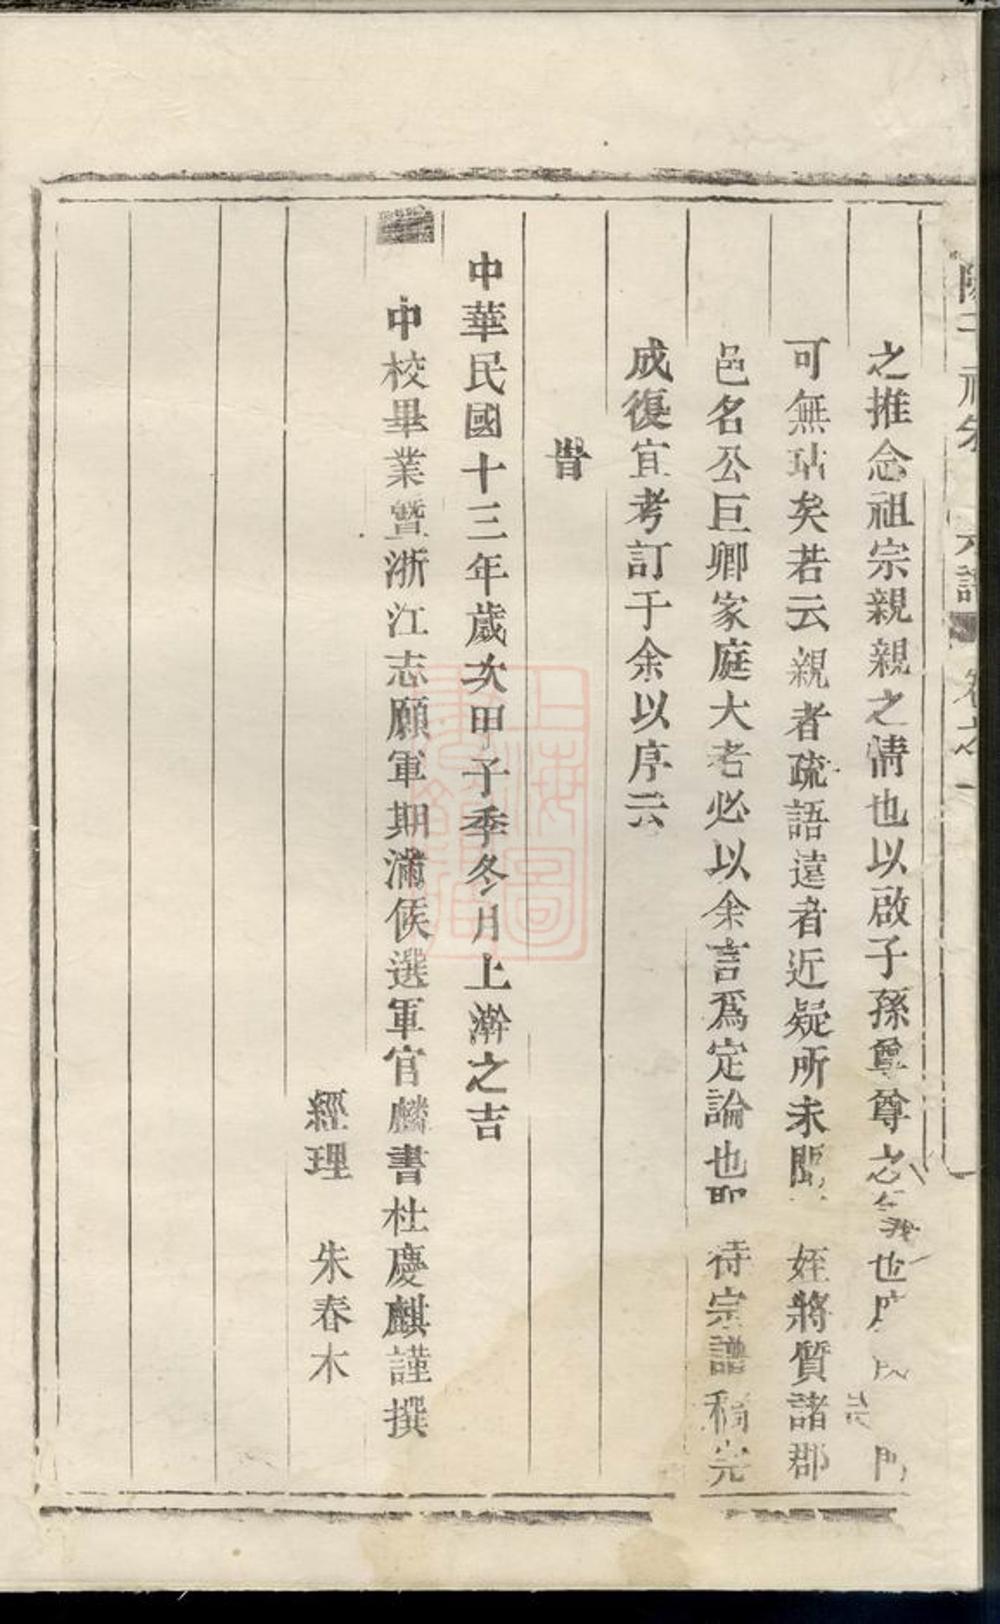 之推念祖宗親親之情也以啟子孫尊尊之義也
可無玷矣若云親者疏語遠者近疑所未 姪將質諸郡
邑名公巨卿家庭大老必以余言爲定論也 待宗譜稿完
成復宜考訂于余以序云
旹
中華民國十三年歲次甲子季冬月上澣之吉
中校畢業暨浙江志願軍期滿候選軍官麟書杜慶麒謹撰
經理 朱春木